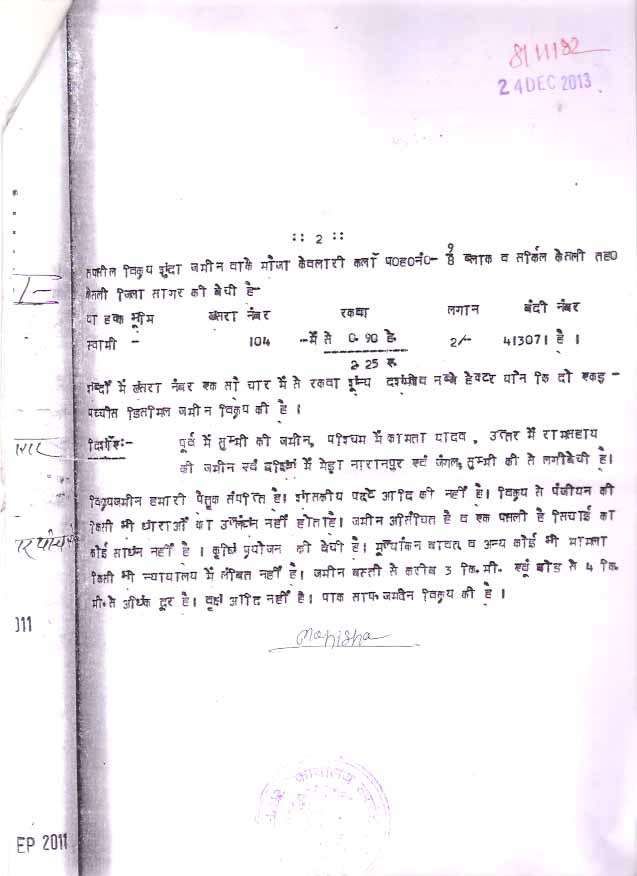 8/11/82
24 DEC 2013
:: 2 ::
तफसील विक्रय शुदा जमीन वाके मौजा केवलारी कलॉ प0ह0नं0- 8 ब्लाक व सर्किल केसली तह0
केसली जिला सागर की बेची है-
या हक भूमि खसरा नंबर रकवा लगान बंदी नंबर
स्वामी - 104 --में से 0.90 हे. 2/- 413071 है ।
2.25 ए.
शब्दों में खसरा नंबर एक सो चार में से रकवा शून्य दशमलव नब्बे हेक्टर यानि कि दो एकड़ -
पच्चीस डिसीमिल जमीन विक्रय की है ।
दिशाएँ:- पूर्व में सुम्मी की जमीन, पश्चिम में कामता यादव , उत्तर में रामसहाय
की जमीन एवं दक्षिण में मेड़ा नारानपुर एवं जंगल, सुम्मी की से लगी बेची है।
विक्रय जमीन हमारी पैतृक संपत्ति है। शासकीय पट्टे आदि की नहीं है। विक्रय से पंजीयन की
किसी भी धाराओं का उल्लंघन नहीं होता है। जमीन असिंचित है व एक फसली है सिंचाई का
कोई साधन नहीं है । कृषि प्रयोजन को बेची है। मूल्यांकन बावत् व अन्य कोई भी मामला
किसी भी न्यायालय में लंबित नहीं है। जमीन बस्ती से करीब 3 कि.मी. एवं रोड से 4 कि.
मी. से अधिक दूर है। वृक्ष आदि नहीं है। पाक साफ जमीन विक्रय की है ।
Manisha
011
कार्यालय
EP 2011